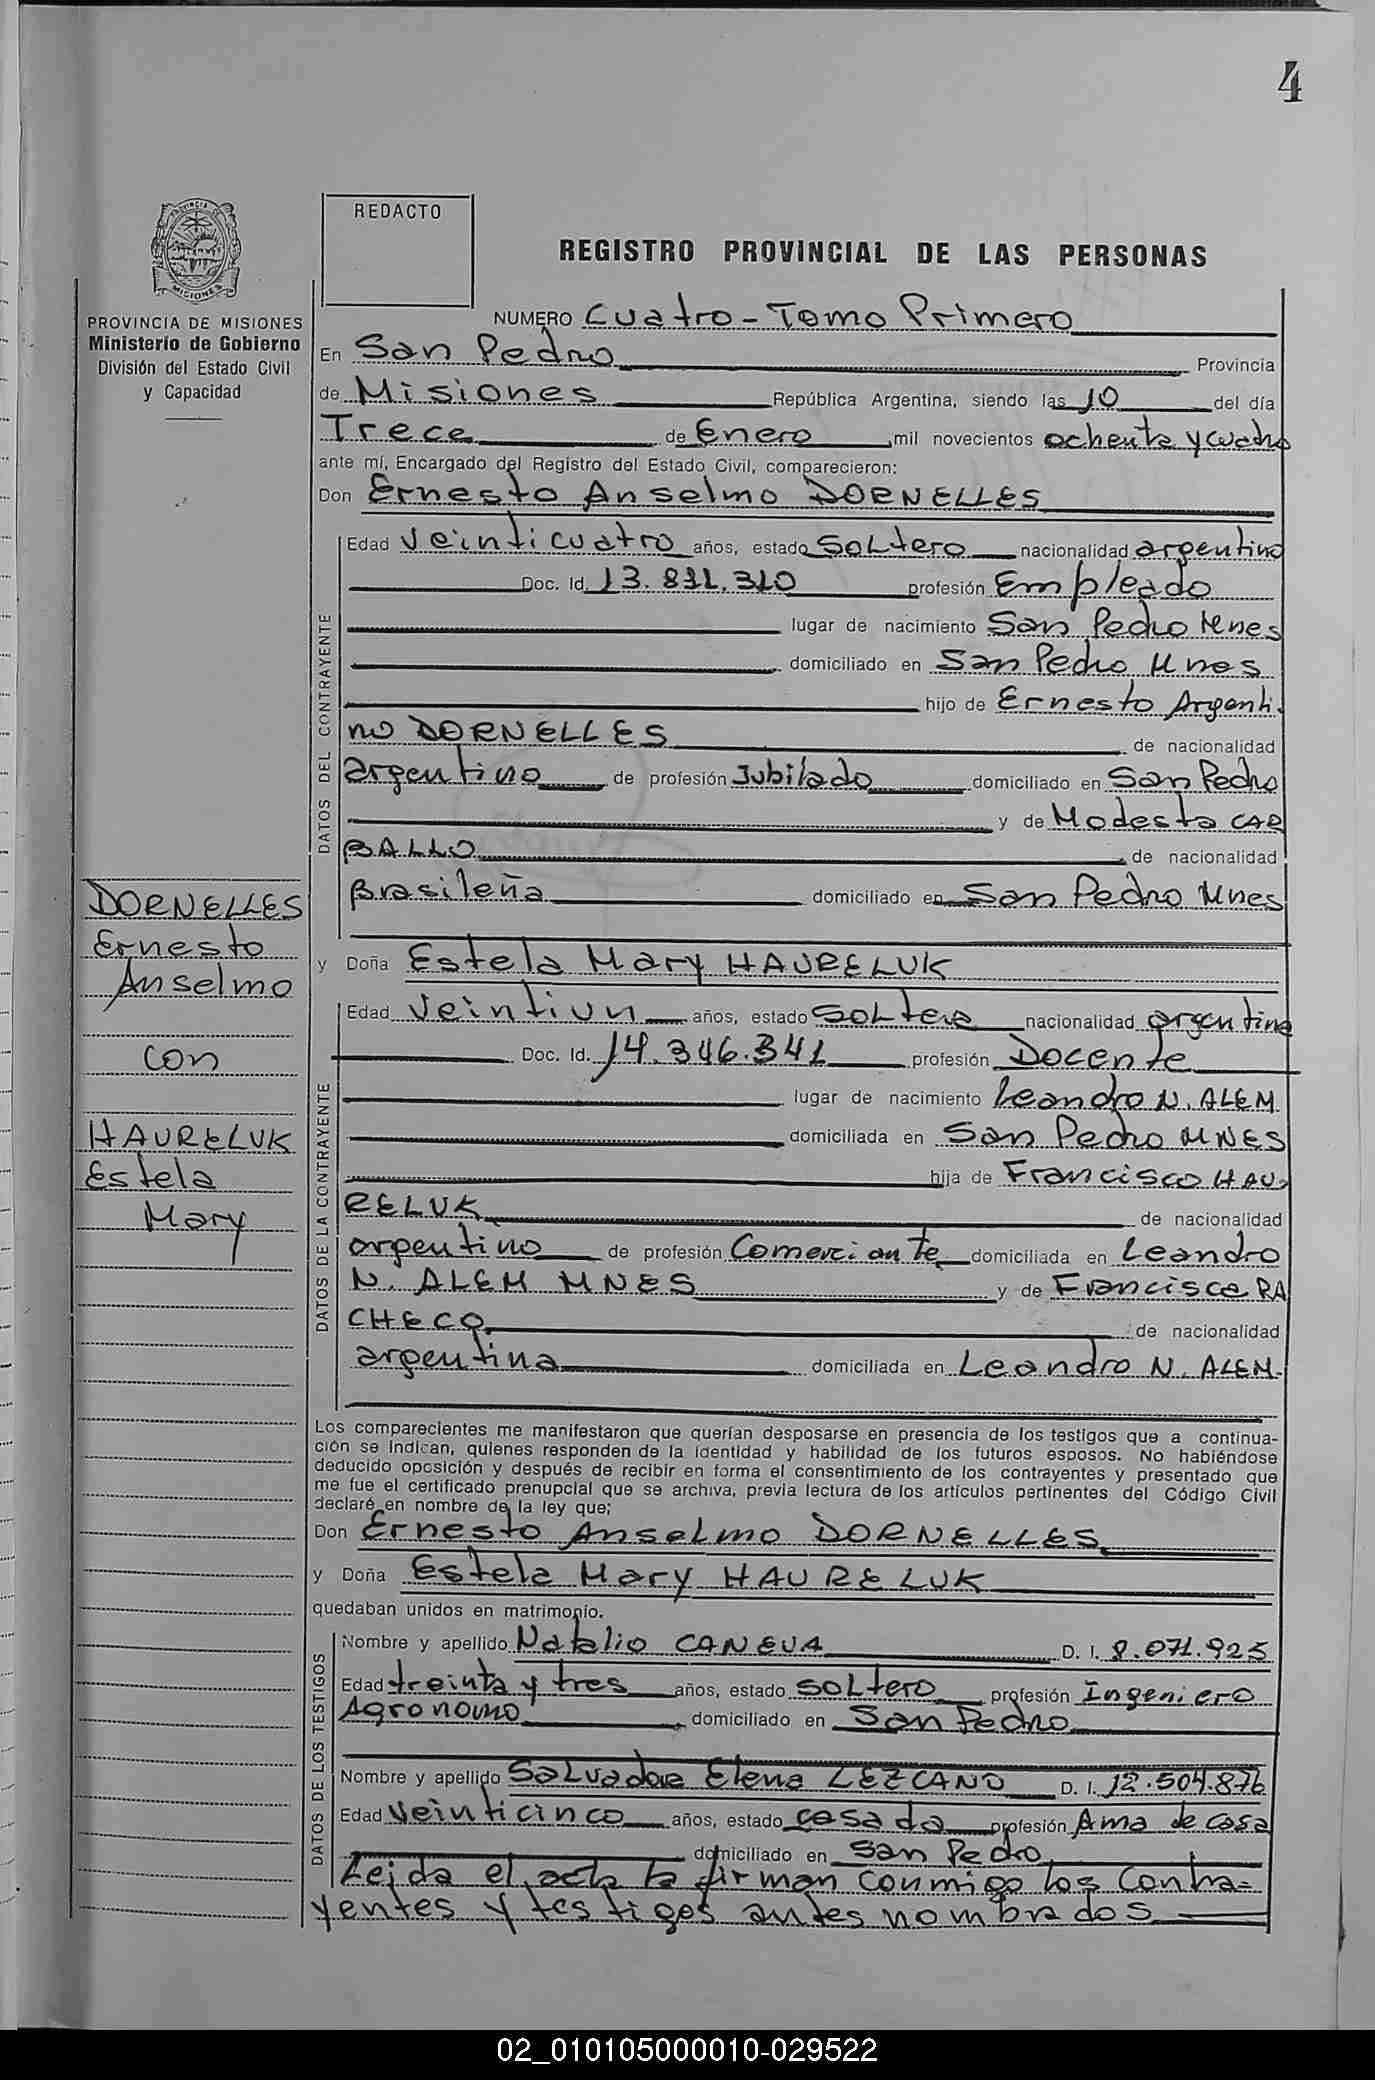 4
REDACTO
REGISTRO PROVINCIAL DE LAS PERSONAS
PROVINCIA DE MISIONES
Ministerio de Gobierno
División del Estado Civil
y Capacidad
NUMERO Cuatro - Tomo Primero
En San Pedro Provincia
de Misiones República Argentina, siendo las 10 del día
Trece de Enero mil novecientos ochenta y cuatro
ante mí, Encargado del Registro del Estado Civil, comparecieron:
Don Ernesto Anselmo DORNELLES
DATOS DEL CONTRAYENTE
Edad Veinticuatro años, estado Soltero nacionalidad argentino
Doc. Id. 13.831.310 profesión Empleado
lugar de nacimiento San Pedro Mnes
domiciliado en San Pedro Mnes
hijo de Ernesto Argenti-
no DORNELLES de nacionalidad
argentino de profesión Jubilado domiciliado en San Pedro
y de Modesta CAR
BALLO de nacionalidad
Brasileña domiciliado en San Pedro Mnes
DORNELLES
Ernesto
Anselmo
con
HAURELUK
Estela
Mary
y Doña Estela Mary HAURELUK
DATOS DE LA CONTRAYENTE
Edad Veintiun años, estado Soltera nacionalidad argentina
Doc. Id. 14.346.341 profesión Docente
lugar de nacimiento Leandro N. ALEM
domiciliada en San Pedro MNES
hija de Francisco HAU
RELUK de nacionalidad
argentino de profesión Comerciante domiciliada en Leandro
N. ALEM MNES y de Francisca RA
CHECO de nacionalidad
argentina domiciliada en Leandro N. ALEM
Los comparecientes me manifestaron que querían desposarse en presencia de los testigos que a continua-
ción se indican, quienes responden de la identidad y habilidad de los futuros esposos. No habiéndose
deducido oposición y después de recibir en forma el consentimiento de los contrayentes y presentado que
me fue el certificado prenupcial que se archiva, previa lectura de los artículos pertinentes del Código Civil
declaré en nombre de la ley que;
Don Ernesto Anselmo DORNELLES
y Doña Estela Mary HAURELUK
quedaban unidos en matrimonio.
DATOS DE LOS TESTIGOS
Nombre y apellido Natalio CANEVA D. I. 8.071.925
Edad treinta y tres años, estado soltero profesión Ingeniero
Agronomo domiciliado en San Pedro
Nombre y apellido Salvadora Elena LEZCANO D. I. 12.504.876
Edad Veinticinco años, estado casada profesión Ama de casa
domiciliado en San Pedro
Leida el acta la firman conmigo los contra=
yentes y testigos antes nombrados
02_010105000010-029522